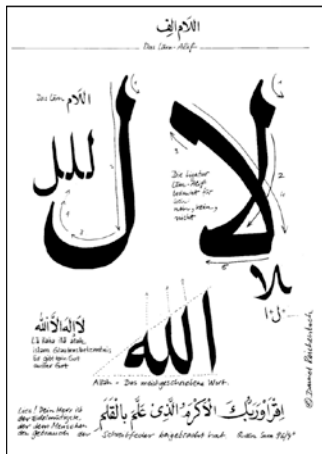 اللام الف
Das Lām-Alif
Das Lām اللام
لل
ل
لا
Die Ligatur
Lām-Alif
bedeutet für
sich
nein, kein,
nicht
لا
لا إله إلا الله
Lā ilaha illā allah,
islam. Glaubensbekenntnis,
Es gibt kein Gott
außer Gott
الله
Allah = Das meistgeschriebene Wort.
© Daniel Reichenbach
إقرأ وربك الأكرم الذى علم بالقلم
Lies! Dein Herr ist
der Edelmütigste,
der dem Menschen
den Gebrauch der Schreibfeder beigebracht hat. Sura 96/3